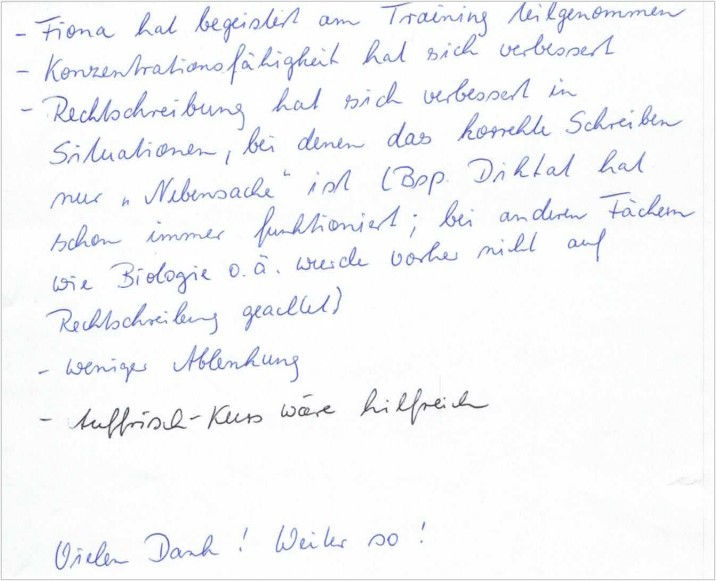 - Fiona hat begeistert am Training teilgenommen
- Konzentrationsfähigkeit hat sich verbessert
- Rechtschreibung hat sich verbessert in
Situationen, bei denen das korrekte Schreiben
nur „Nebensache" ist (Bsp. Diktat hat
schon immer funktioniert; bei anderen Fächern
wie Biologie o.ä. wurde vorher nicht auf
Rechtschreibung geachtet)
- weniger Ablenkung
- Auffrisch-Kurs wäre hilfreich
Vielen Dank! Weiter so!